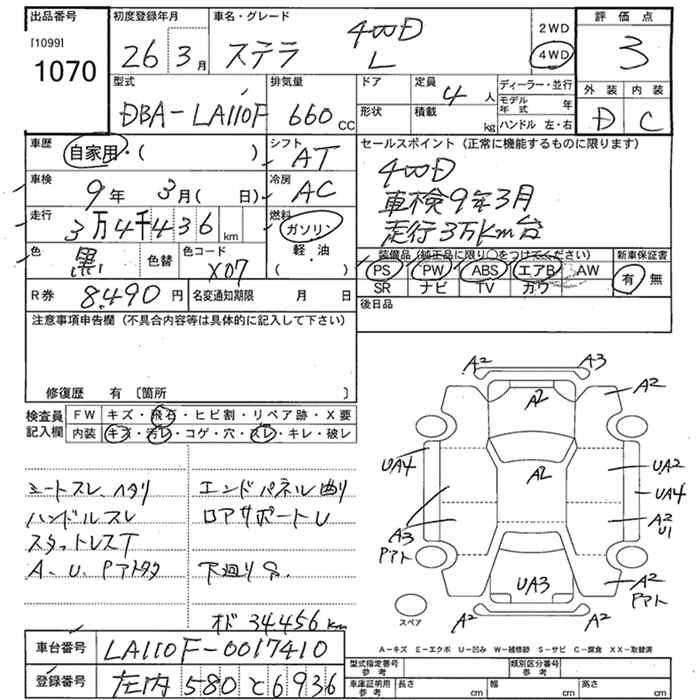 出品番号
[1099]
1070
初度登録年月
26年3月
車名・グレード
ステラ 4WD L
2WD
4WD
評価点
3
外装 内装
D C
型式
DBA-LA110F
排気量
660 cc
ドア
形状
定員
4人
積載
kg
ディーラー・並行
モデル年式 年
ハンドル 左・右
車歴
自家用・( )
シフト
AT
車検
9年 3月( 日)
冷房
AC
走行
3万4千436 km
燃料
ガソリン
軽・油
( )
色
黒
色替
色コード
X07
R券
8,490円
名変通知期限 月 日
セールスポイント(正常に機能するものに限ります)
4WD
車検9年3月
走行3万Km台
装備品(純正品に限り○をつけてください)
PS PW ABS エアB AW
SR ナビ TV カワ
新車保証書
有 無
後日品
注意事項申告欄(不具合内容等は具体的に記入して下さい)
修復歴 有 〔箇所 〕
検査員記入欄
FW キズ・飛石・ヒビ割・リペア跡・X要
内装 キズ・汚レ・コゲ・穴・スレ・キレ・破レ
シートスレ、ヘタリ
ハンドルスレ
スタットレスT
A、U、Pアトタタ
エンドパネル曲り
ロアサポートU
下廻りS.
オド 34,456 km
車台番号
LA110F-0017410
登録番号
580 と 6936
A2 A3
A2
A2
UA4
A2
UA2
UA4
A3
Pアト
A2
U1
UA3
A2
Pアト
A2 A2
スペア
A-キズ E-エクボ U-凹み W-補修跡 S-サビ C-腐食 XX-取替済
型式指定番号 参考
類別区分番号 参考
車庫証明用 参考
長さ cm
幅 cm
高さ cm